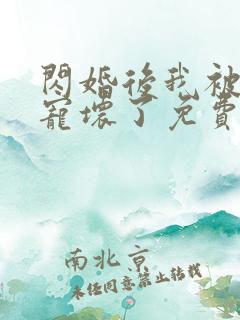 閃婚後我被
寵壞了免費
南北京
未任同意禁止转载